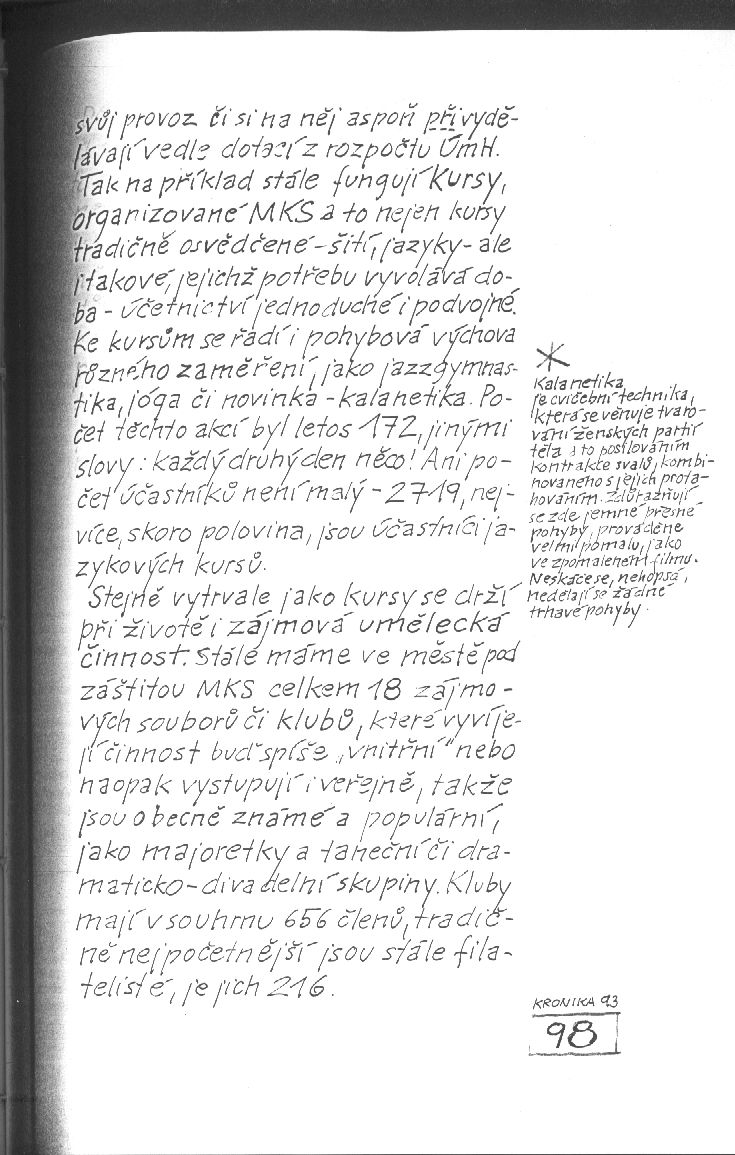 svůj provoz či si na něj aspoň přivydě-
lávají vedle dotací z rozpočtu ÚmH.
Tak na příklad stále fungují kursy,
organizované MKS a to nejen kursy
tradičně osvědčené – šití, jazyky – ale
i takové, jejichž potřebu vyvolává do-
ba – účetnictví jednoduché i podvojné.
Ke kursům se řadí i pohybová výchova
různého zaměření, jako jazzgymnas-
tika, jóga či novinka – kalanetika. Po-
čet těchto akcí byl letos 172, jinými
slovy: každý druhý den něco! Ani po-
čet účastníků není malý – 2719, nej-
více, skoro polovina, jsou účastníci ja-
zykových kursů.
Stejně vytrvale jako kursy se drží
při životě i zájmová umělecká
činnost. Stále máme ve městě pod
záštitou MKS celkem 18 zájmo-
vých souborů či klubů, které vyvíje-
jí činnost buď spíše „vnitřní“ nebo
naopak vystupují i veřejně, takže
jsou obecně známé a populární,
jako majoretky a taneční či dra-
maticko-divadelní skupiny. Kluby
mají v souhrnu 656 členů, tradič-
ně nejpočetnější jsou stále fila-
telisté, je jich 216.
*
Kalanetika
je cvičební technika,
která se věnuje tvaro-
vání ženských partií
těla a to posilováním
kontrakce svalů, kombi-
novaného s jejich prota-
hováním. Zdůrazňují
se zde jemné přesné
pohyby, prováděné
velmi pomalu, jako
ve zpomaleném filmu.
Neskáče se, nehopsá,
nedělají se žádné
trhavé pohyby.
KRONIKA 93
98